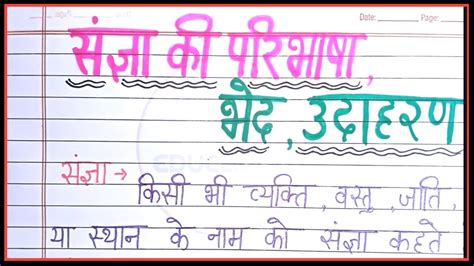 Date: Page:
संज्ञा की परिभाषा,
भेद, उदाहरण
संज्ञा → किसी भी व्यक्ति, वस्तु, जाति,
या स्थान के नाम को संज्ञा कहते